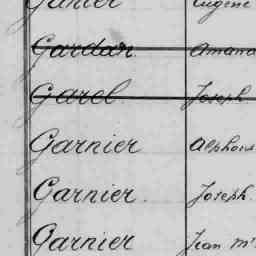 Ganier Eugène
Gardar. Amand
Garel. Joseph
Garnier Alphons
Garnier. Joseph.
Garnier Jean M